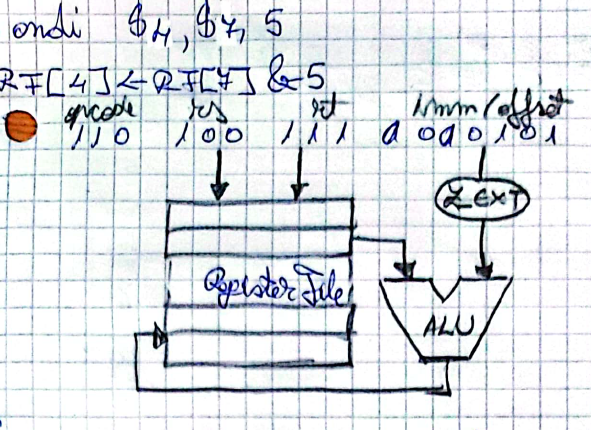 andi $4, $7, 5
RF[4] ← RF[7] & 5
opcode rs rt imm/offset
110 100 111 0000101
ZEXT
Register File
ALU